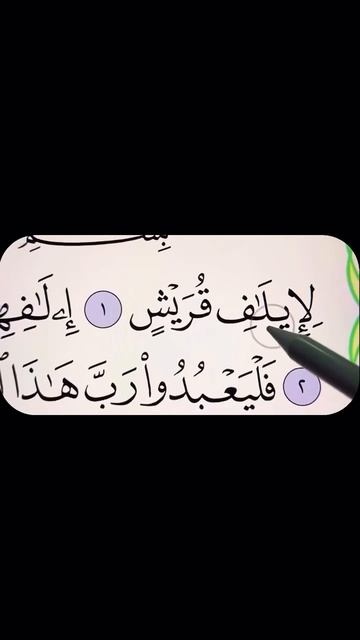 لِإِيلَـٰفِ قُرَيْشٍ ١ إِۦلَـٰفِهِ
٢ فَلْيَعْبُدُوا۟ رَبَّ هَـٰذَا